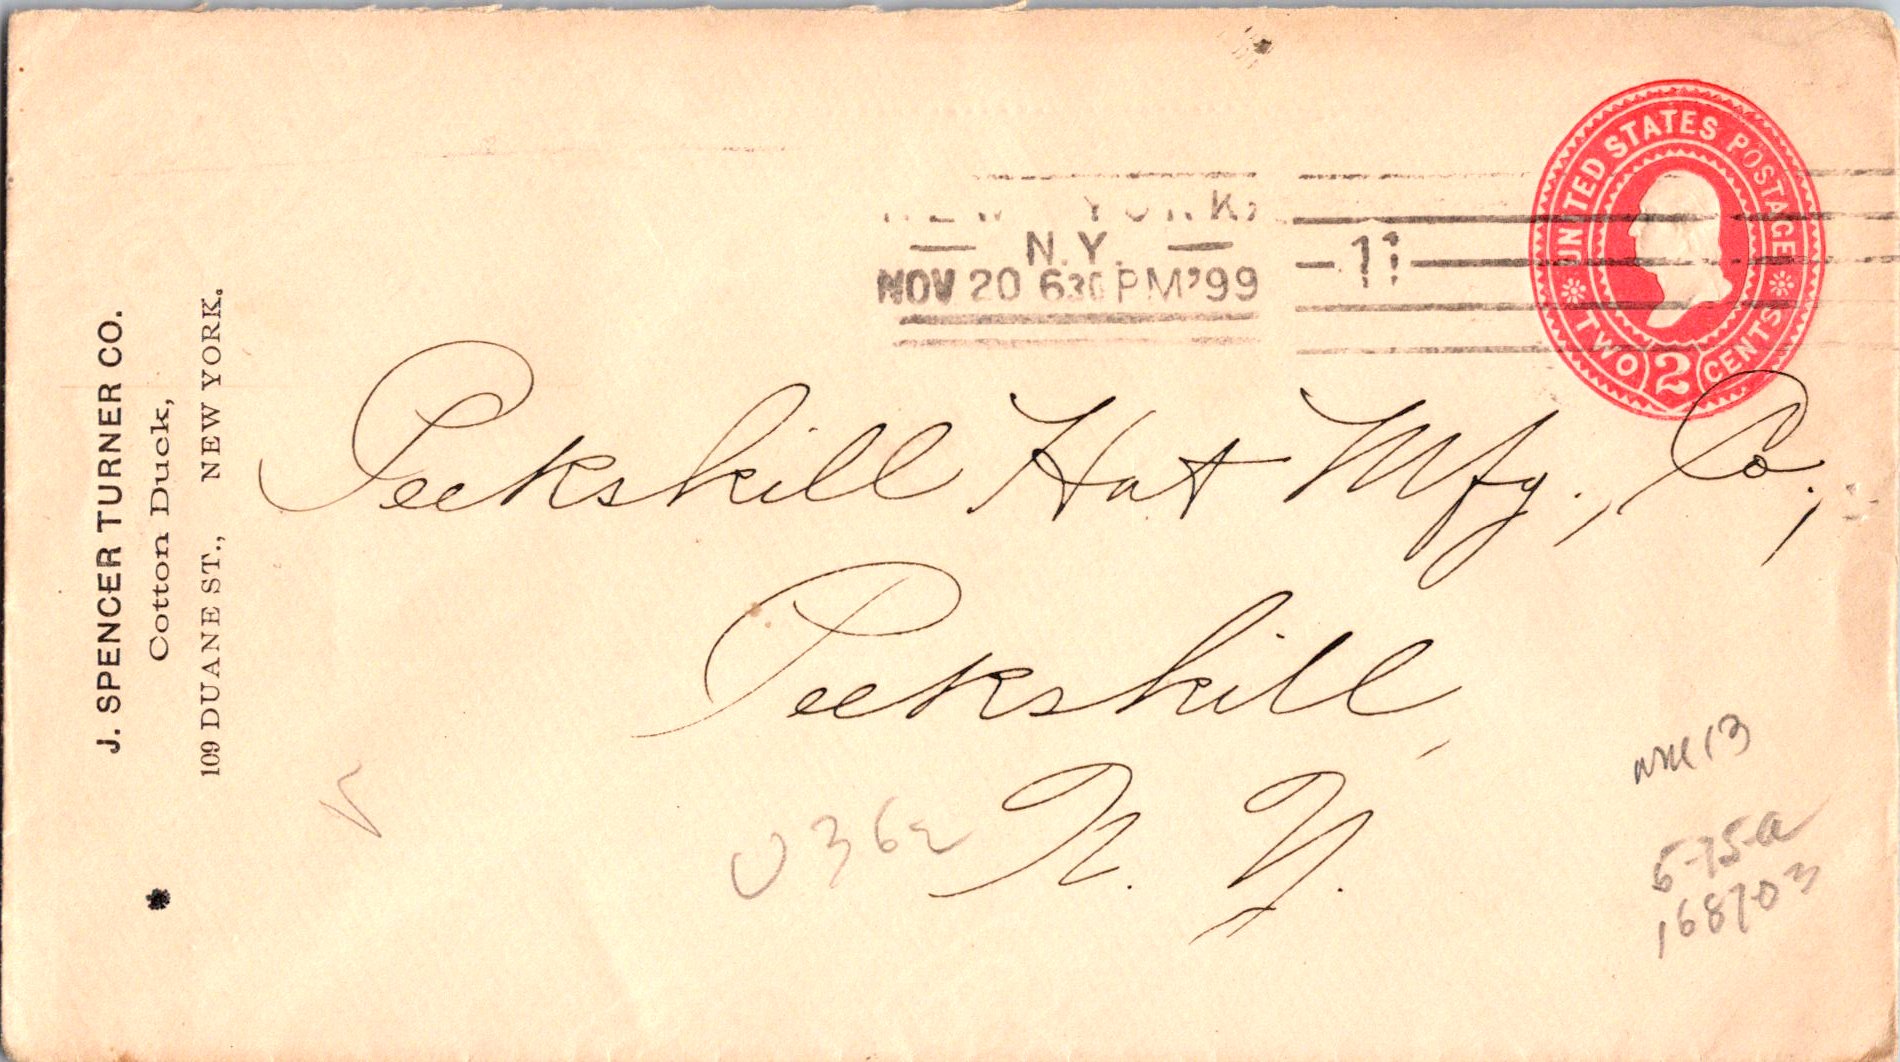 J. SPENCER TURNER CO.
Cotton Duck,
109 DUANE ST., NEW YORK.
NEW YORK,
N.Y.
NOV 20 630 PM '99
11
UNITED STATES POSTAGE
TWO 2 CENTS
Peekskill Hat Mfg., Co.,
Peekskill,
N. Y.
U362
13
5-75a
168703